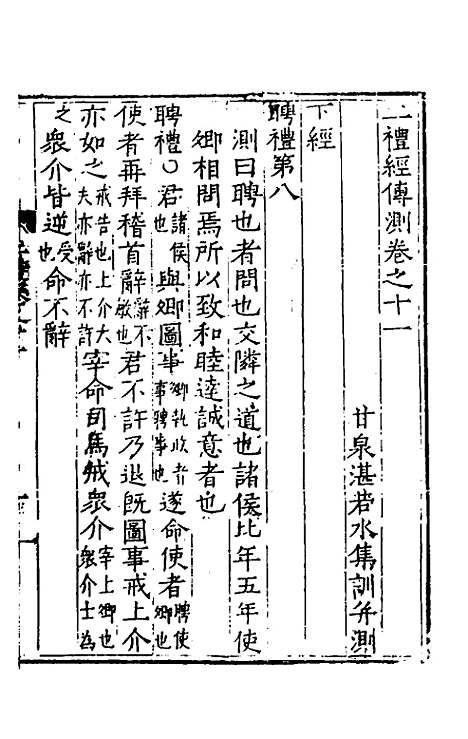 二禮經傳測卷之十一
甘泉湛若水集訓并測
下經
聘禮第八
測曰聘也者問也交隣之道也諸侯比年五年使
卿相問焉所以致和睦達誠意者也
聘禮○君諸侯也與卿圖事卿執政者事聘事也遂命使者聘使卿也
使者再拜稽首辭辭不敏也君不許乃退旣圖事戒上介
亦如之戒告也上介大夫亦辭亦不許宰命司馬戒衆介宰上卿也衆介士為
之衆介皆逆受也命不辭